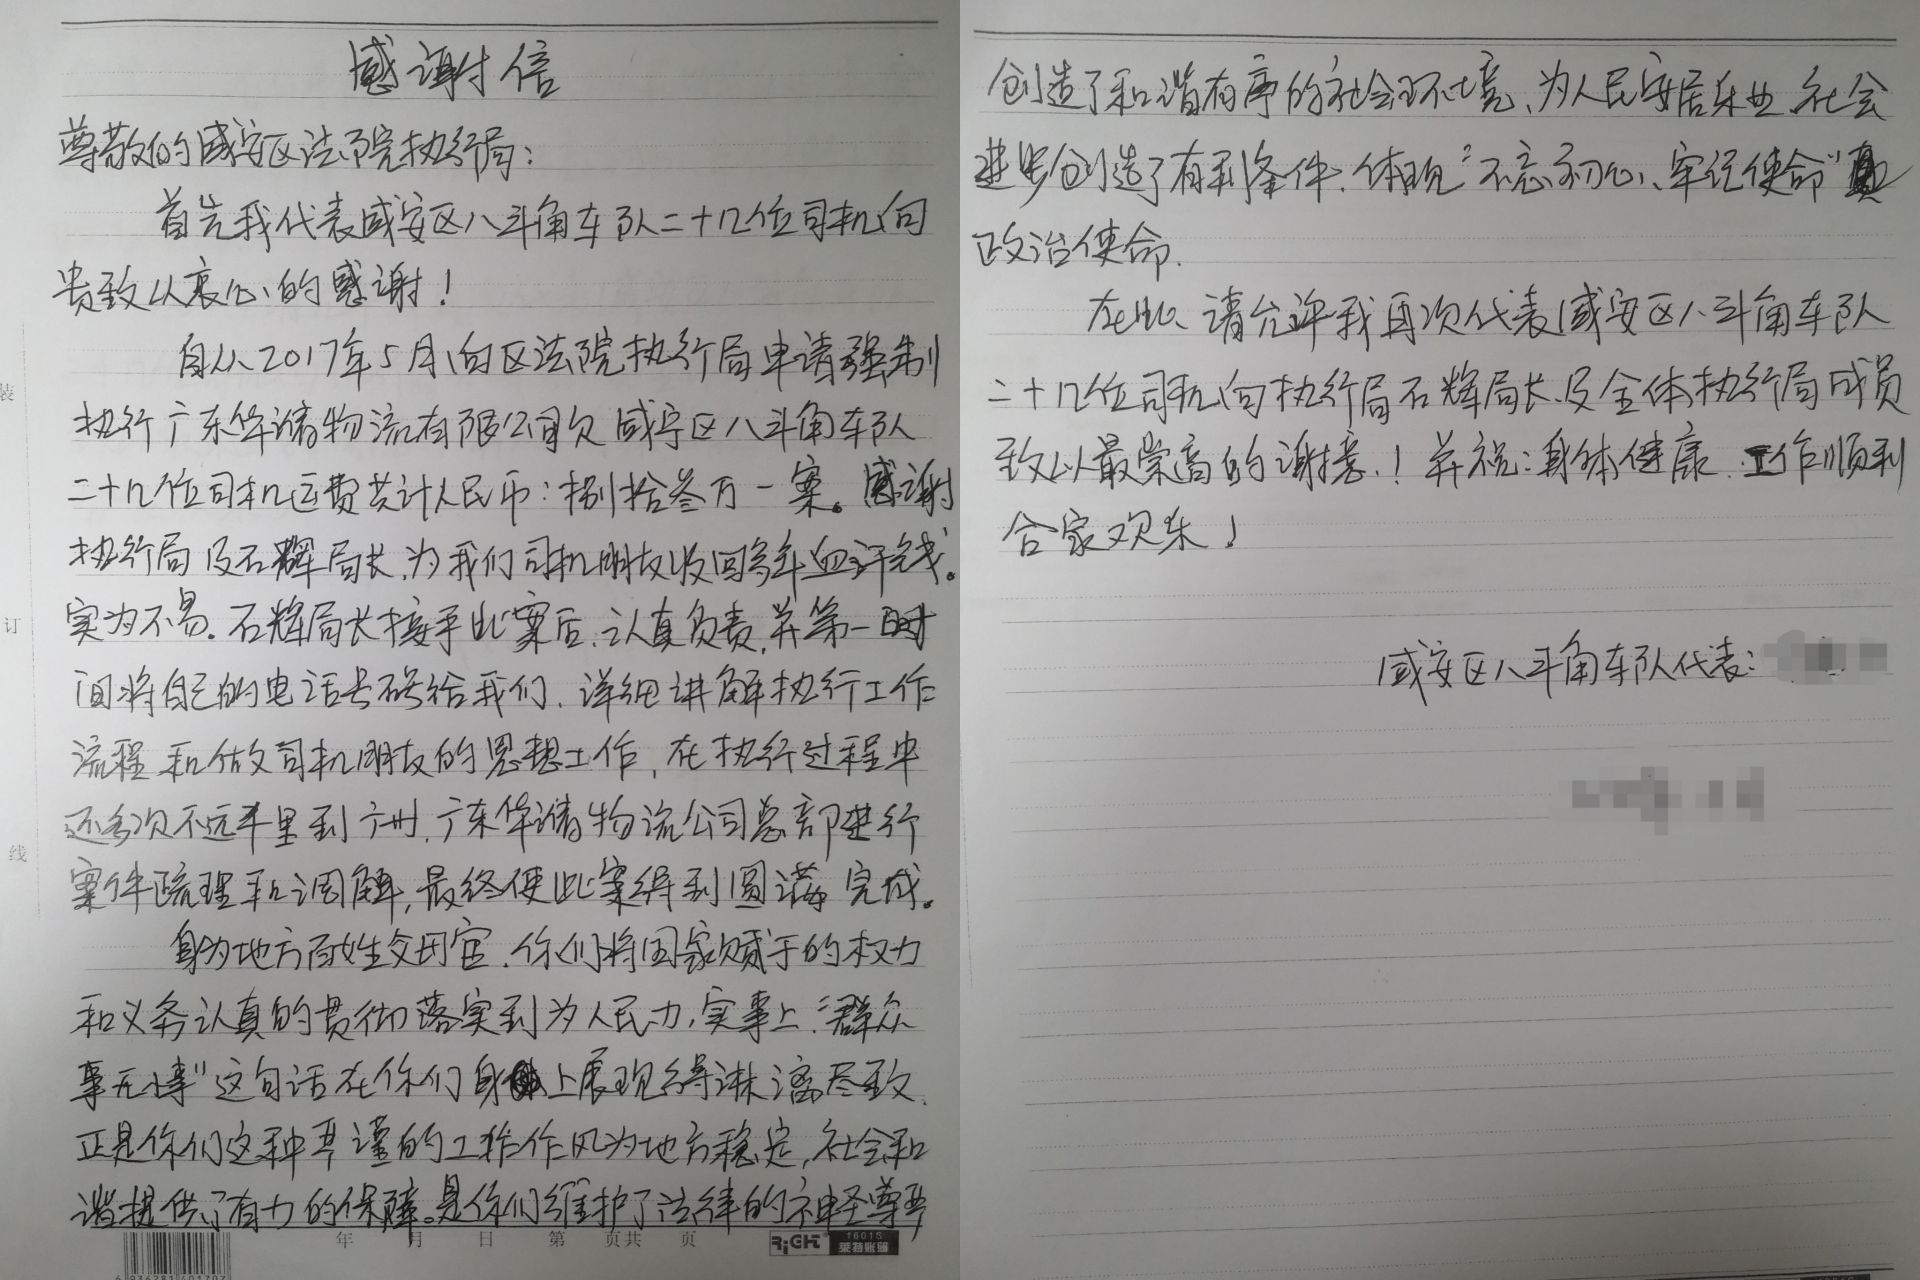 感谢信
尊敬的咸安区法院执行局：
首先我代表咸安区八斗角车队二十几位司机向
贵致以衷心的感谢！
自从2017年5月向区法院执行局申请强制
执行广东华清物流有限公司欠咸宁区八斗角车队
二十几位司机运费共计人民币：捌拾叁万一案。感谢
执行局及石辉局长、为我们司机朋友收回多年血汗钱。
实为不易。石辉局长接手此案后、认真负责，并第一时
间将自己的电话号码给我们、详细讲解执行工作
流程和做司机朋友的思想工作，在执行过程中
还多次不远千里到广州、广东华清物流公司总部进行
案件疏理和调解，最终使此案得到圆满完成。
身为地方百姓父母官、你们将国家赋于的权力
和义务认真的贯彻落实到为人民力，实事上“群众
事无小事”这句话在你们身上展现得淋漓尽致、
正是你们这种严谨的工作作风为地方稳定，社会和
谐提供了有力的保障。是你们维护了法律的神经尊严
年 月 日 第 页共 页
RiGHT 1601S
莱特账簿
6936281601707
装
订
线
创造了和谐有序的社会环境、为人民安居乐业、社会
进步创造了有利条件、体现“不忘初心、牢记使命”真
政治使命.
在此、请允许我再次代表咸安区八斗角车队
二十几位司机向执行局石辉局长、及全体执行局成员
致以最崇高的谢意！并祝：身体健康、工作顺利
合家欢乐！
咸安区八斗角车队代表：